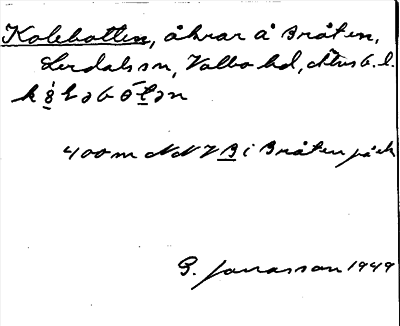 Kolebotten, åkrar å Bråten,
Lerdals sn, Valbo hd, Älvsb. l.
400 m NNV B i Bråten på ek
G. Jonasson 1949